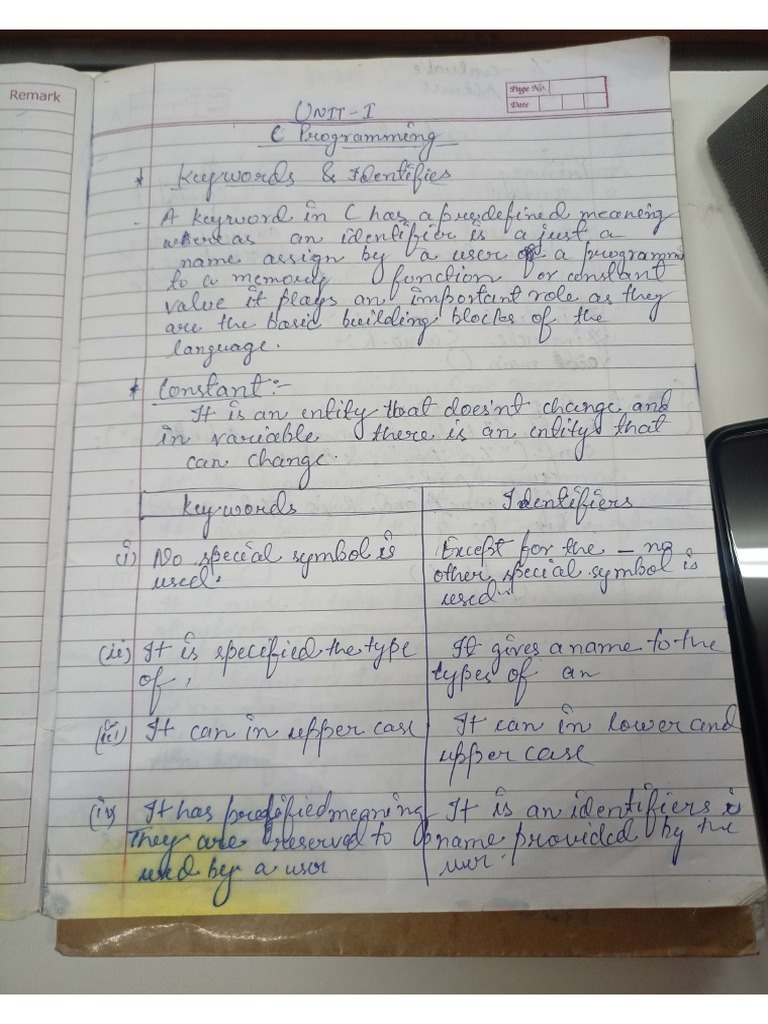 Remark
Page No.
Date
UNIT-I
C Programming
* Keywords & Identifies
- A keyword in C has a predefined meaning
where as an identifier is a just a
name assign by a user of a programm
to a memory function or constant
value it plays an important role as they
are the basic building blocks of the
language.
* Constant:-
It is an entity that does'nt change and
in variable there is an entity that
can change.
Keywords Identifiers
(i) No special symbol is Except for the _ no
used. other special symbol is
used.
(ii) It is specified the type It gives a name to the
of, types of an
(iii) It can in upper case It can in lower and
upper case
(iv) It has predified meaning It is an identifiers is
They are reserved to name provided by the
used by a user user.